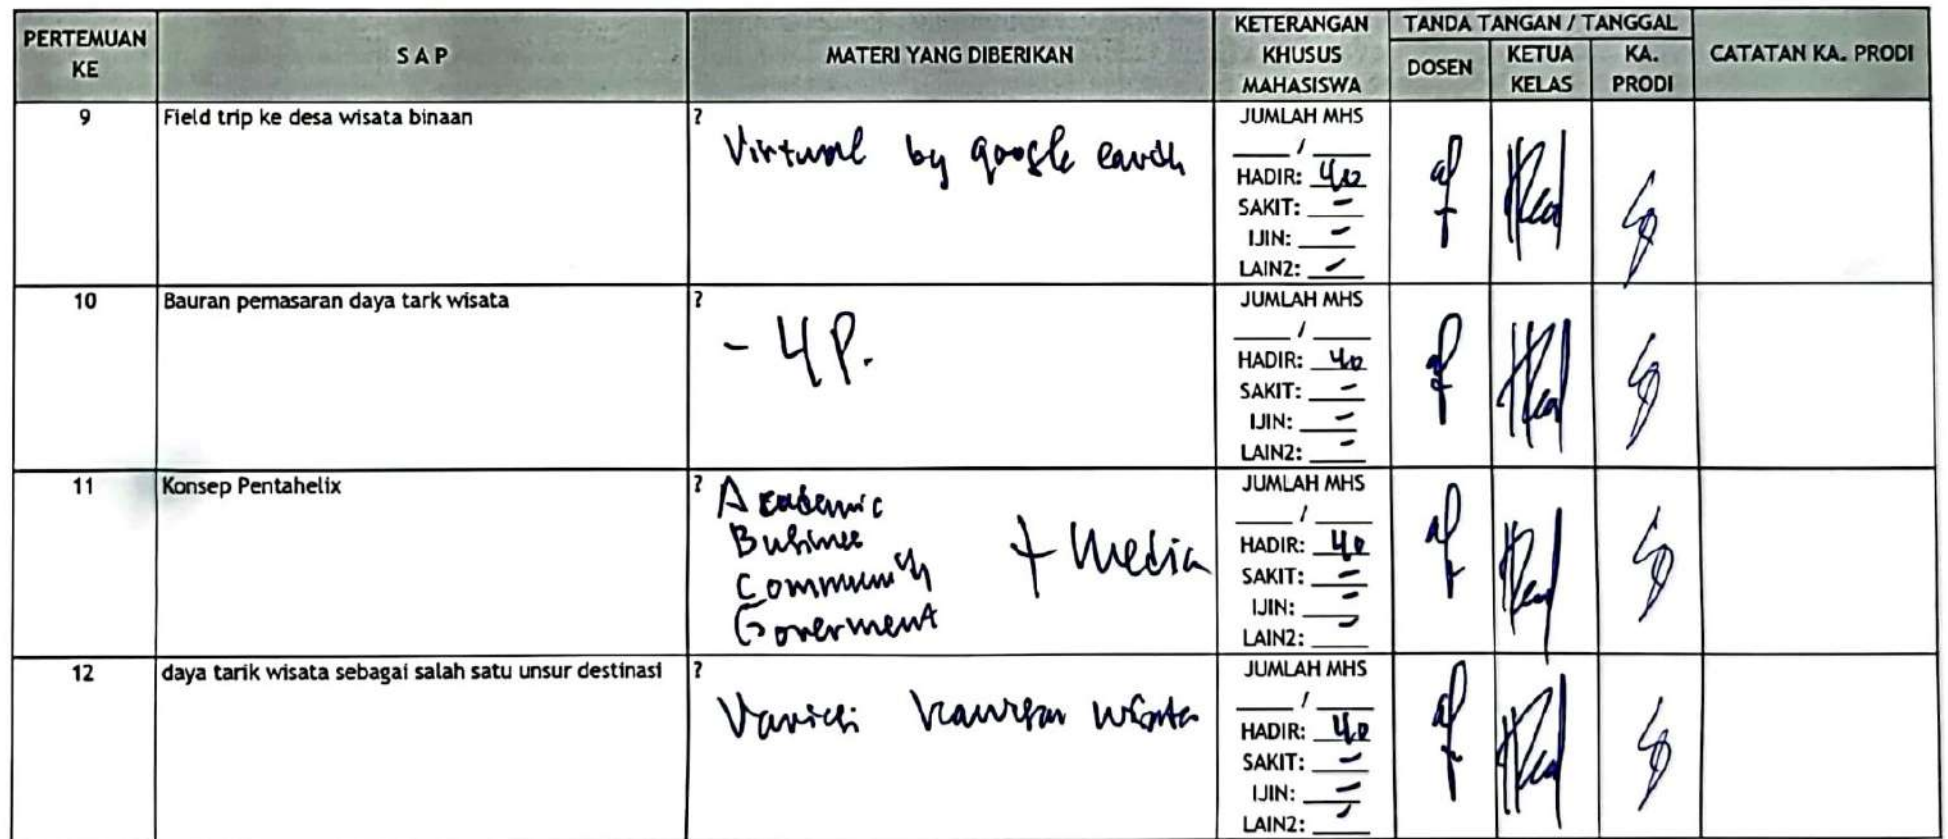 PERTEMUAN KE
S A P
MATERI YANG DIBERIKAN
KETERANGAN KHUSUS MAHASISWA
TANDA TANGAN / TANGGAL
DOSEN
KETUA KELAS
KA. PRODI
CATATAN KA. PRODI
9
Field trip ke desa wisata binaan
?
Virtual by google earth
JUMLAH MHS
/
HADIR: 40
SAKIT: -
IJIN: -
LAIN2: -
10
Bauran pemasaran daya tark wisata
?
- 4P.
JUMLAH MHS
/
HADIR: 40
SAKIT: -
IJIN: -
LAIN2: -
11
Konsep Pentahelix
?
Academic
Businee
Community
Goverment
+ Media
JUMLAH MHS
/
HADIR: 40
SAKIT: -
IJIN: -
LAIN2: -
12
daya tarik wisata sebagai salah satu unsur destinasi
?
Variasi kawasan wisata
JUMLAH MHS
/
HADIR: 40
SAKIT: -
IJIN: -
LAIN2: -